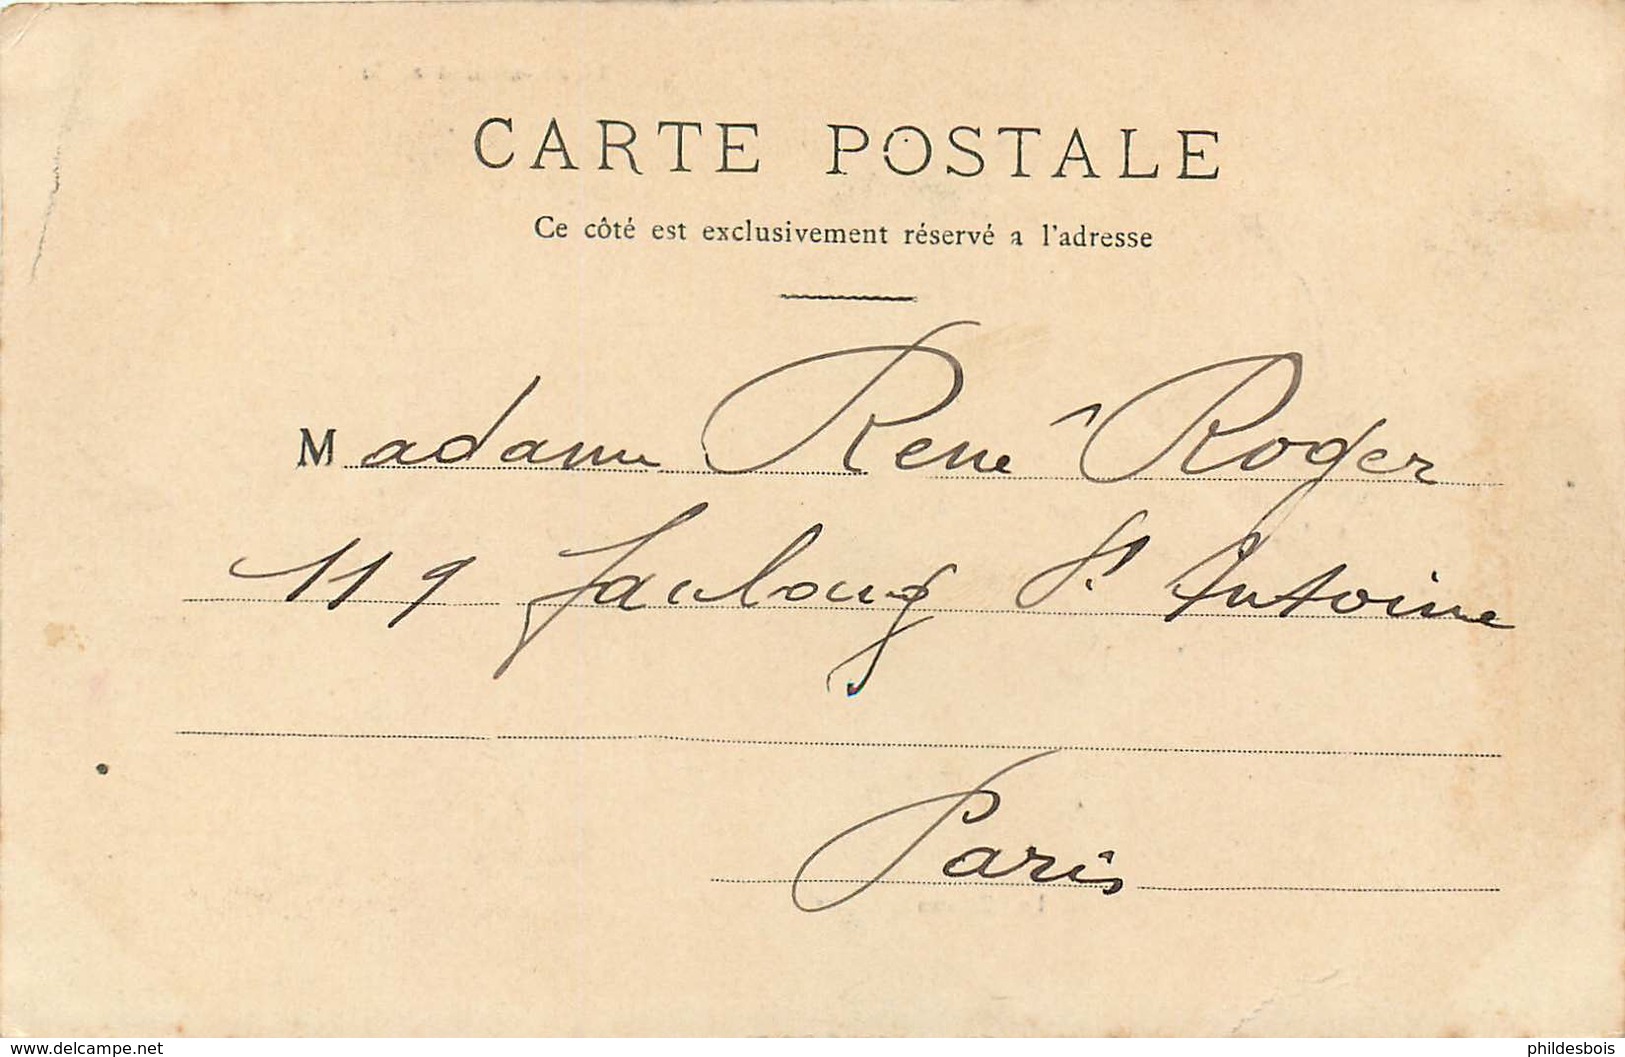 CARTE POSTALE
Ce côté est exclusivement réservé a l'adresse
Madame René Roger
119 faubourg St. Antoine
Paris
www.delcampe.net
phildesbois